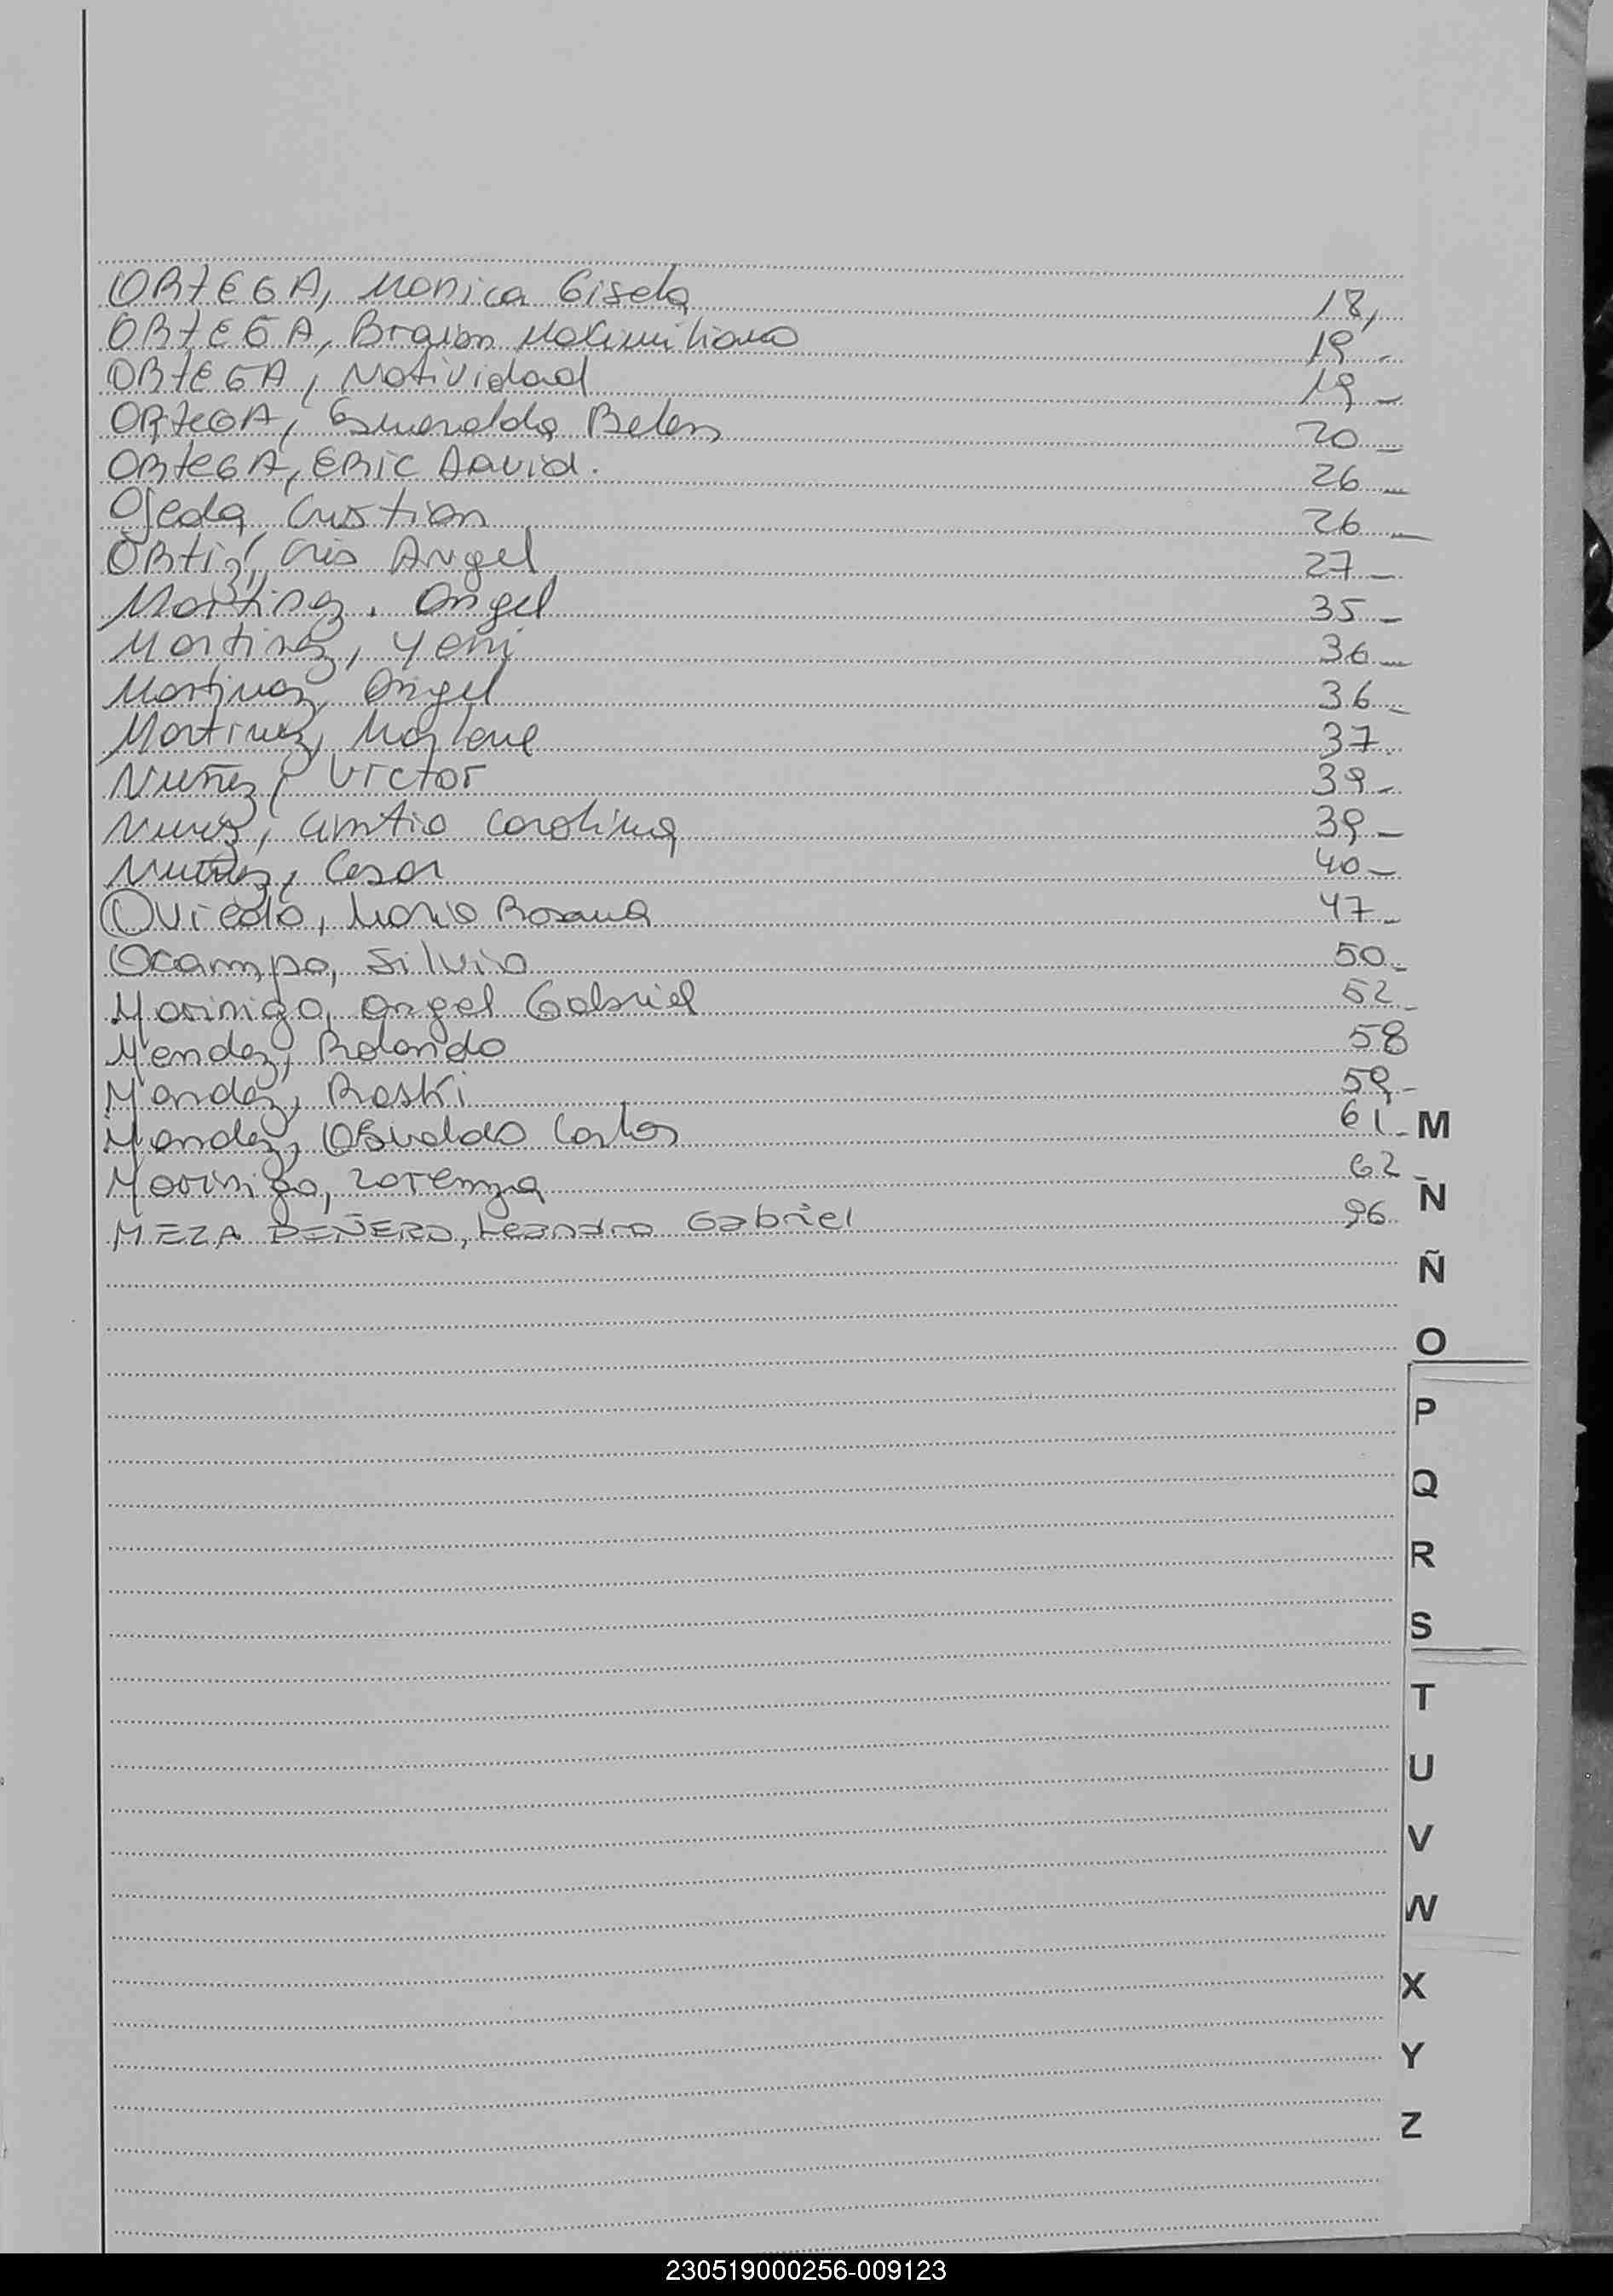 ORTEGA, Monica Gisela 18,
ORTEGA, Braian Maximiliano 19 -
ORTEGA, Natividad 19 -
ORTEGA, Esmeralda Belen 20 -
ORTEGA, ERIC DAVID. 26 -
Ojeda, Cristian 26 -
ORTIZ, Cris Angel 27 -
Martinez, Angel 35 -
Martinez, Yeni 36 -
Martinez, Angel 36 -
Martinez, Marlene 37.
Nuñez, Victor 39 -
Nunez, Cintia Carolina 39 -
Nuñez, Cesar 40 -
Oviedo, Maria Rosana 47 -
Ocampo, Silvio 50 -
Morinigo, Angel Gabriel 52 -
Mendez, Rolando 58
Mendez, Roski 59 -
Mendez, Osvaldo Carlos 61 -
Morinigo, Lorenza 62 -
MEZA PEÑERO, Leandro Gabriel 96
M
N
Ñ
O
P
Q
R
S
T
U
V
W
X
Y
Z
230519000256-009123